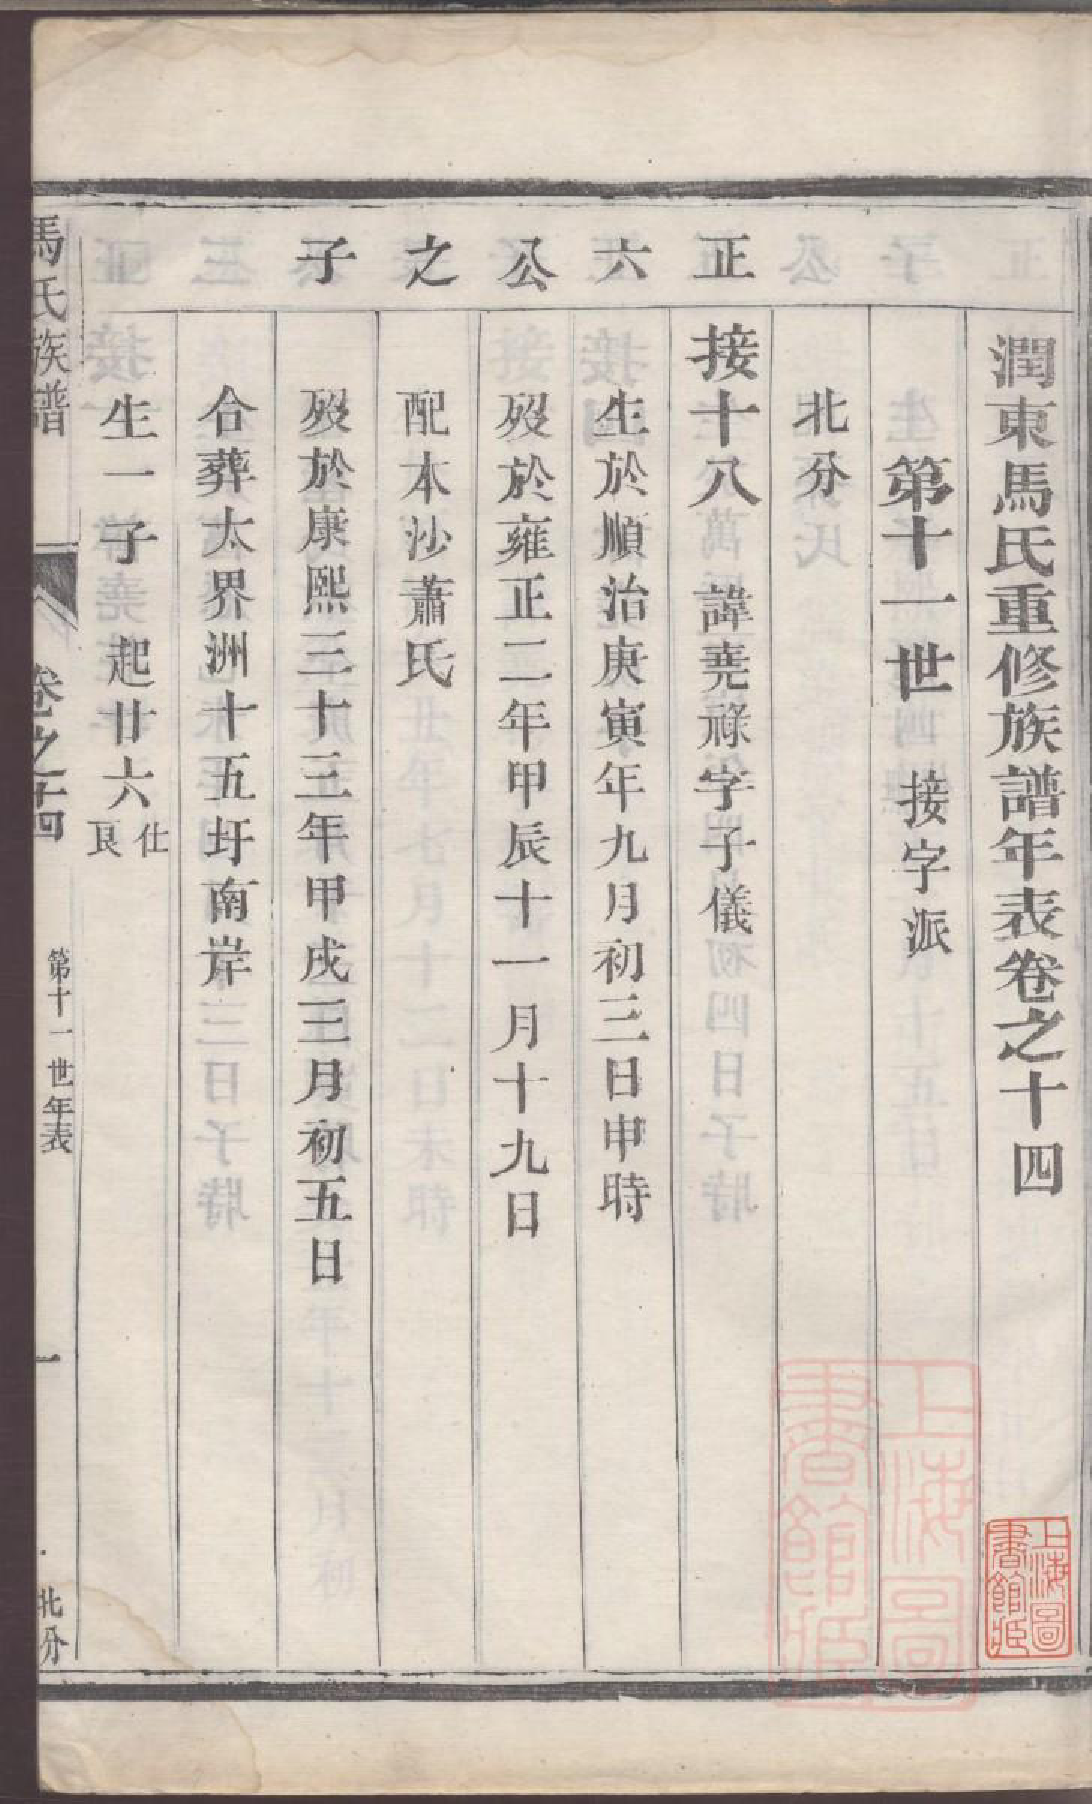 潤東馬氏重修族譜年表卷之十四
第十一世 接字派
北分
正六公之子
接十八 諱堯祿字子儀
生於順治庚寅年九月初三日申時
歿於雍正二年甲辰十一月十九日
配本沙蕭氏
歿於康熙三十三年甲戌三月初五日
合葬太界洲十五圩南岸
生一子 起廿六 仕艮
馬氏族譜 卷之十四 第十一世年表 一 北分
上海圖書館藏
上海圖書館藏